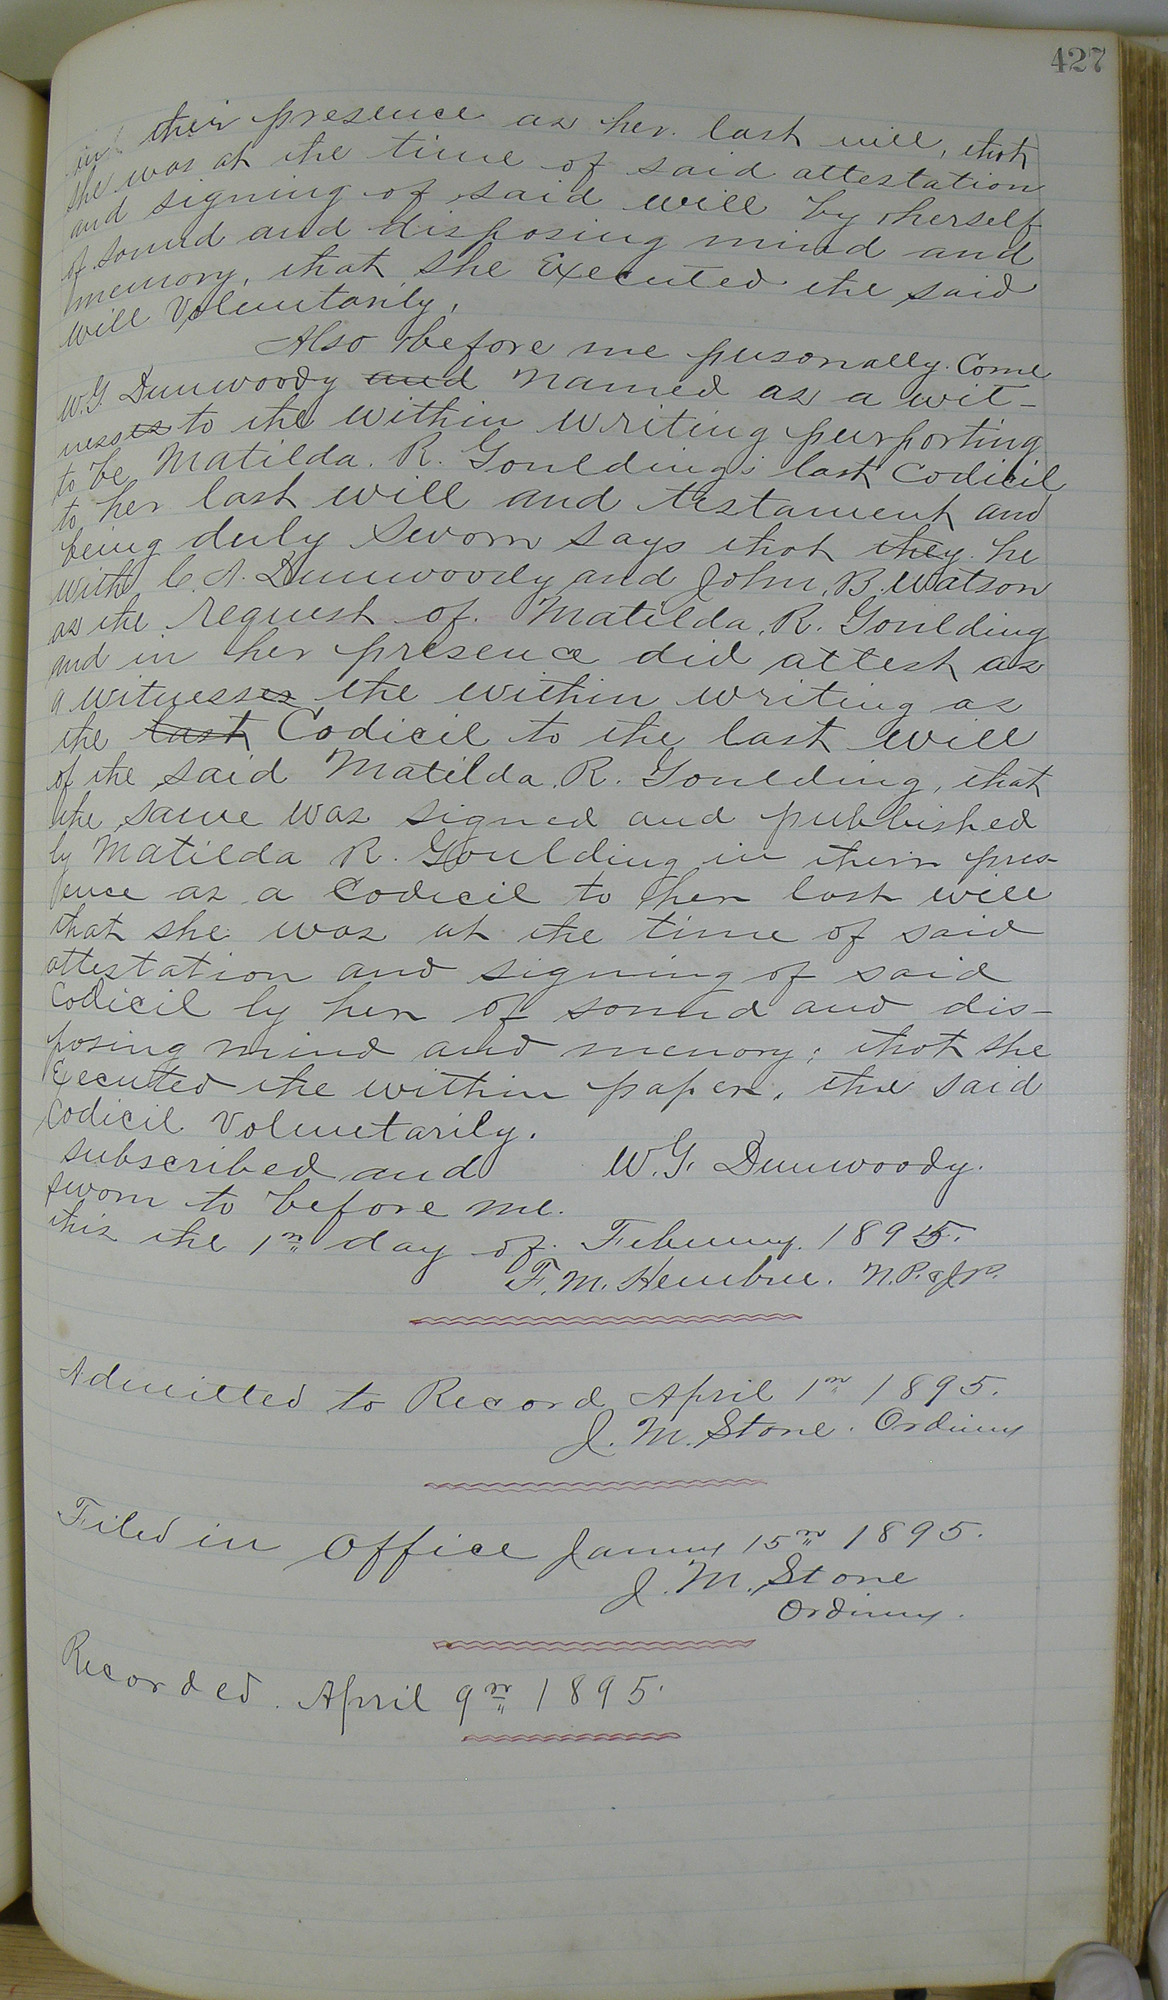 427
in their presence as her last will, that
she was at the time of said attestation
and signing of said will by herself
of sound and disposing mind and
memory, that she Executed the said
will Voluntarily.
Also before me personally Come
W.G. Dunwoody and named as a wit-
nesses to the within writing purporting
to be Matilda. R. Goulding's last Codicil
to her last will and testament and
being duly sworn says that they he
with C. A. Dunwoody and John B. Watson
as the request of Matilda. R. Goulding
and in her presence did attest as
a witnesses the within writing as
the last Codicil to the last will
of the said Matilda. R. Goulding, that
the same was signed and published
by Matilda R. Goulding in their pres-
ence as a Codicil to her last will
that she was at the time of said
attestation and signing of said
Codicil by her of sound and dis-
posing mind and memory; that she
Executed the within paper, the said
Codicil Voluntarily.
subscribed and W.G. Dunwoody.
sworn to before me.
this the 1st day of February. 1895.
F. M. Hembree. N.P.&J.P.
Admitted to Record April 1st 1895.
J. M. Stone. Ordinary
Filed in Office January 15th 1895.
J. M. Stone
Ordinary.
Recorded. April 9th 1895.